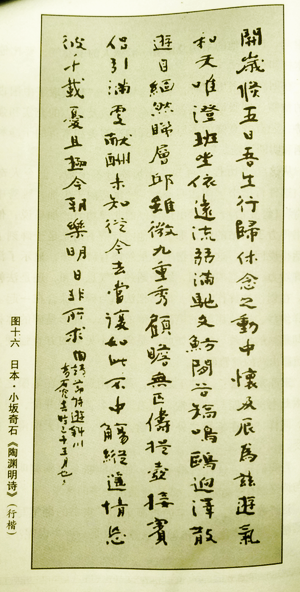 開歲倏五日吾生行歸休念之動中懷及辰為茲遊氣
和天唯澄班坐依遠流弱湍馳文魴閒谷矯鳴鷗迥澤散
遊目緬然睇層邱雖微九重秀顧瞻無匹儔提壺接賓
侶引滿更献酬未知從今去當復如此不中觴縱遙情忘
彼千載憂且極今朝樂明日非所求
遊斜川
图十六 日本·小坂奇石《陶渊明诗》(行楷)